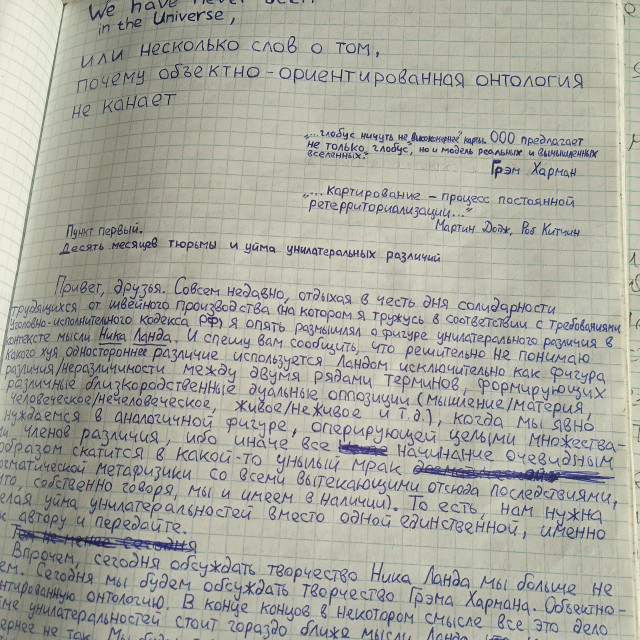 We have never been
in the Universe,
или несколько слов о том,
почему объектно-ориентированная онтология
не канает
„...глобус ничуть не „высокомернее" карты. ООО предлагает
не только „глобус", но и модель реальных и вымышленных
вселенных."
Грэм Харман
„...картирование – процесс постоянной
ретерриториализации..."
Мартин Додж, Роб Китчин
Пункт первый.
Десять месяцев тюрьмы и уйма унилатеральных различий
Привет, друзья. Совсем недавно, отдыхая в честь дня солидарности
трудящихся от швейного производства (на котором я тружусь в соответствии с требованиями
Уголовно-исполнительного кодекса РФ), я опять размышлял о фигуре унилатерального различия в
контексте мысли Ника Ланда. И спешу вам сообщить, что решительно не понимаю
какого хуя одностороннее различие используется Ландом исключительно как фигура
различия/неразличимости между двумя рядами терминов, формирующих
различные близкородственные дуальные оппозиции (мышление/материя,
человеческое/нечеловеческое, живое/неживое и т.д.), когда мы явно
нуждаемся в аналогичной фигуре, оперирующей целыми множества-
ми членов различия, ибо иначе все начинание очевидным
образом скатится в какой-то унылый мрак
догматической метафизики со всеми вытекающими отсюда последствиями,
что, собственно говоря, мы и имеем в наличии). То есть, нам нужна
целая уйма унилатеральностей вместо одной единственной, именно
так автору и передайте.
Тем не менее сегодня
Впрочем, сегодня обсуждать творчество Ника Ланда мы больше не
будем. Сегодня мы будем обсуждать творчество Грэма Хармана. Объектно-
ориентированную онтологию. В конце концов в некотором смысле все это дело
унилатеральностей стоит гораздо ближе мысли Ланда
не так. Мы